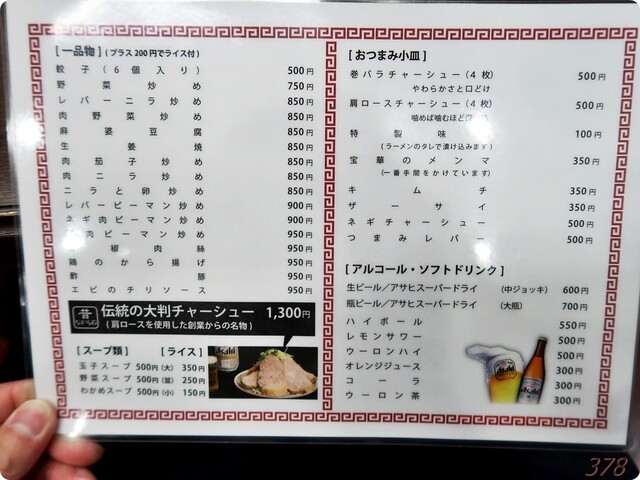 [一品物] (プラス200円でライス付)
餃子(6個入り) 500円
野菜炒め 750円
レバーニラ炒め 850円
肉野菜炒め 850円
麻婆豆腐 850円
生姜焼 850円
肉茄子炒め 850円
肉ニラ炒め 850円
ニラと卵炒め 850円
レバーピーマン炒め 900円
ネギ肉ピーマン炒め 900円
肉ピーマン炒め 950円
椒肉絲 950円
鶏のから揚げ 950円
酢豚 950円
エビのチリソース 950円
昔ながらの 伝統の大判チャーシュー 1,300円
(肩ロースを使用した創業からの名物)
[スープ類] [ライス]
玉子スープ 500円 (大) 350円
野菜スープ 500円 (並) 250円
わかめスープ 500円 (小) 150円
Asahi
[おつまみ小皿]
巻バラチャーシュー(4枚) 500円
やわらかさと口どけ
肩ロースチャーシュー(4枚) 500円
噛めば噛むほど
特製味 100円
(ラーメンのタレで漬け込みます)
宝華のメンマ 350円
(一番手間をかけています)
キムチ 350円
ザーサイ 350円
ネギチャーシュー 500円
つまみレバー 500円
[アルコール・ソフトドリンク]
生ビール/アサヒスーパードライ (中ジョッキ) 600円
瓶ビール/アサヒスーパードライ (大瓶) 700円
ハイボール 550円
レモンサワー 500円
ウーロンハイ 500円
オレンジジュース 300円
コーラ 300円
ウーロン茶 300円
Asahi
378